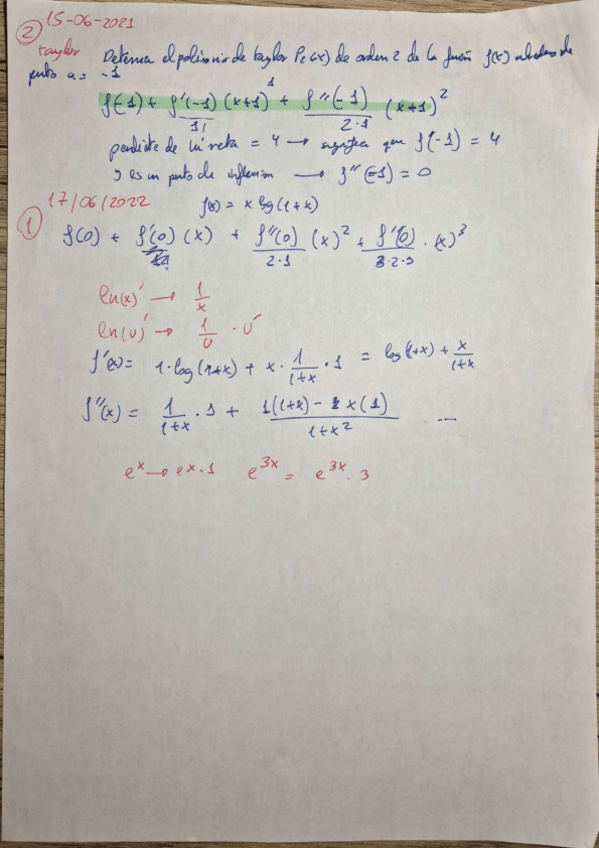 15-06-2021
② taylor Determina el polinomio de taylor P₂(x) de orden 2 de la función f(x) alrededor de
punto a = -1
f(-1) + f'(-1)/1! (x+1)¹ + f''(-1)/2·1 (x+1)²
pendiente de la recta = 4 → significa que f'(-1) = 4
y es un punto de inflexion → f''(-1) = 0
17/06/2022
① f(x) = x log(1+x)
f(0) + f'(0) (x) + f''(0)/2·1 (x)² + f'''(0)/3·2·1 · (x)³
ln(x)' → 1/x
ln(u)' → 1/u · u'
f'(x) = 1·log(1+x) + x · 1/1+x · 1 = log(1+x) + x/1+x
f''(x) = 1/1+x · 1 + 1(1+x) - x(1)/1+x² ...
eˣ → eˣ·1 e³ˣ = e³ˣ · 3